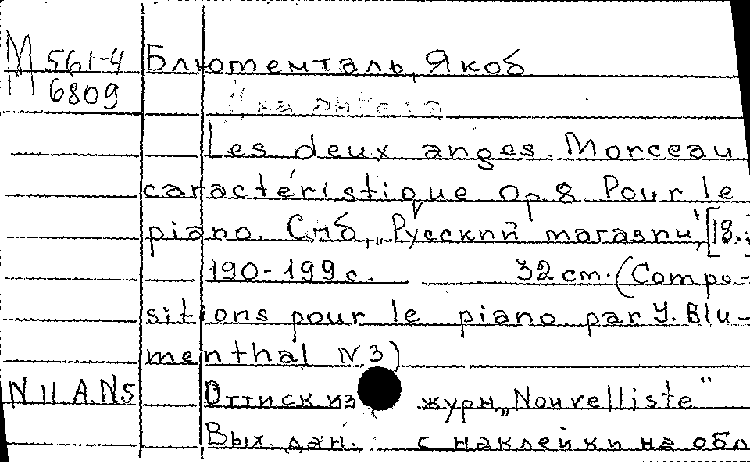 М 561-4 Блюменталь, Якоб
М 6809 Два ангела
Les deux anges. Morceau
caractéristique op. 8 Pour le
piano. Спб, „Русский магазин", [18..;
190-199 с. 32 cm. (Compo-
sitions pour le piano par J. Blu-
menthal N 3)
N II A.N5 Оттиск из журн. „Nouvelliste"
Вых. дан. с наклейки на обл